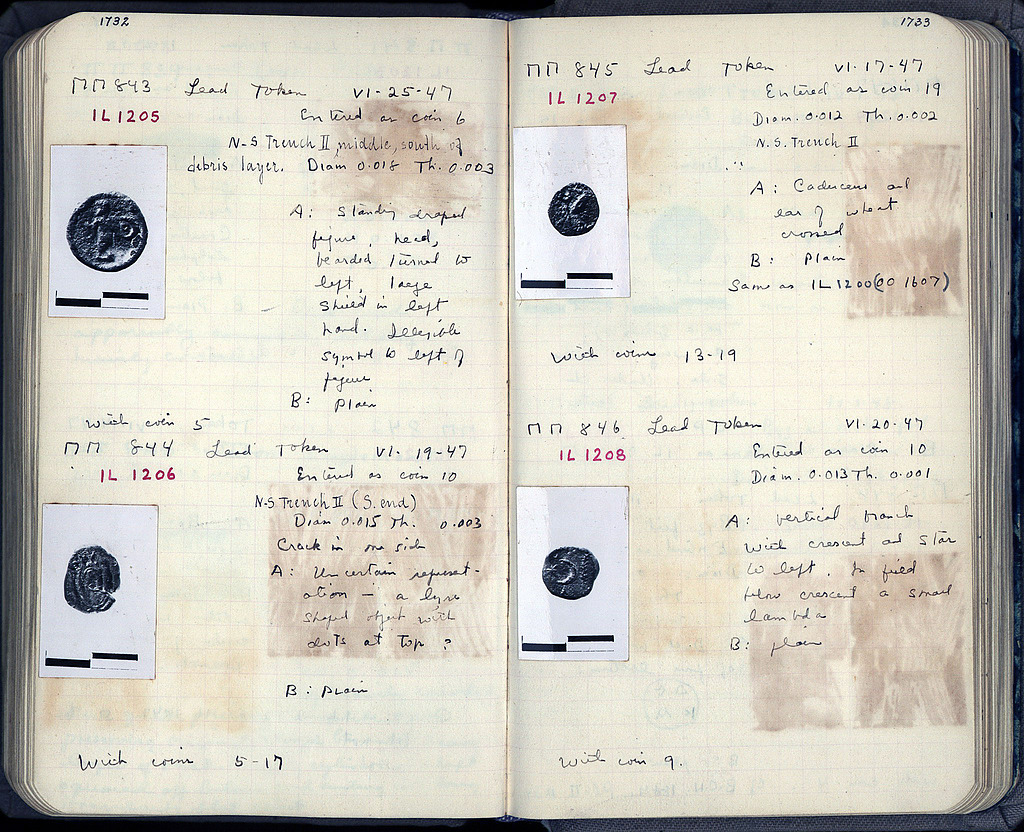 1732
ΠΠ 843 Lead Token VI-25-47
IL 1205 Entered as coin 6
N-S Trench II, middle, south of
debris layer. Diam 0.018 Th. 0.003
A: Standing draped
figure, head,
bearded turned to
left, large
shield in left
hand. Illegible
symbol to left of
figure
B: Plain
With coin 5
ΠΠ 844 Lead Token VI-19-47
IL 1206 Entered as coin 10
N-S Trench II (S. end)
Diam 0.015 Th. 0.003
Crack in one side
A: Uncertain represent-
ation - a lyre
shaped object with
dots at top?
B: Plain
With coins 5-17
1733
ΠΠ 845 Lead Token VI-17-47
IL 1207 Entered as coin 19
Diam. 0.012 Th. 0.002
N.S. Trench II
A: Caduceus and
ear of wheat
crossed
B: Plain
Same as IL 1200 (OO 1607)
With coins 13-19
ΠΠ 846 Lead Token VI-20-47
IL 1208 Entered as coin 10
Diam. 0.013 Th. 0.001
A: vertical branch
with crescent and star
to left. In field
below crescent a small
lambda
B: plain
With coin 9.